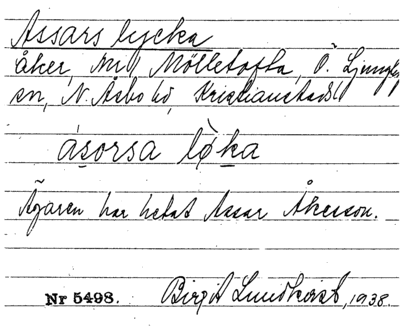 Assars lycka
åker, Mölletofta, Ö. Ljungby
sn, N. Åsbo hd, Kristianstads l.
ásorsa lø̀ka
Ägaren har hetat Assar Åkerson.
Nr 5498. Birgit Lundkvist, 1938.